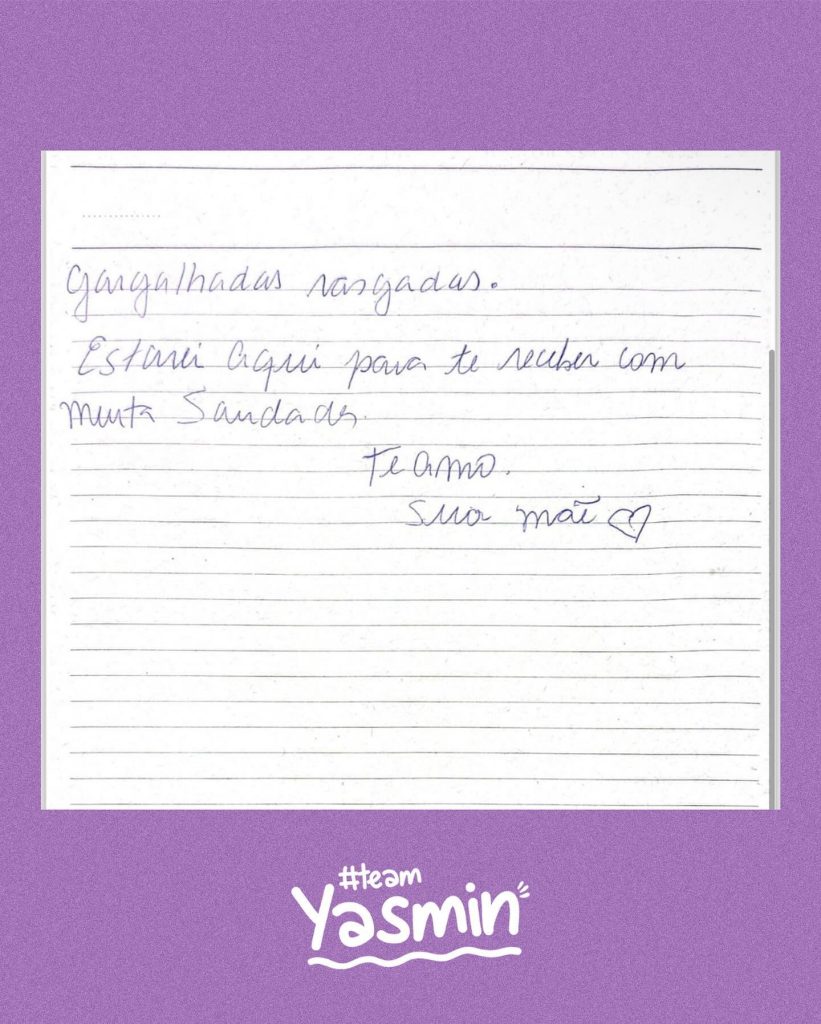 gargalhadas rasgadas.
Estarei aqui para te receber com
muita Saudades.
Te amo.
sua mãe
#team
Yasmin